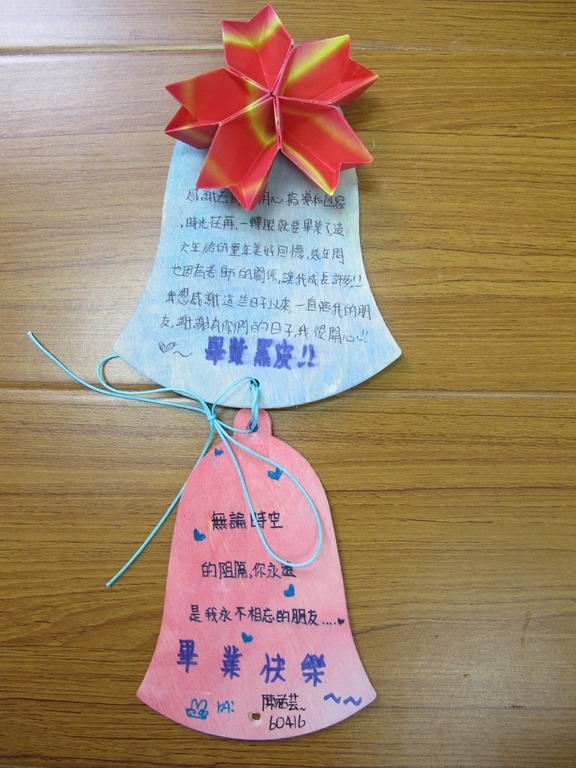 感謝老師的用心指導和包容
,時光荏苒,一轉眼就要畢業了,這
六年給的童年美好回憶,幾年間
也因為老師的關係,讓我成長許多!!
我想感謝這些日子以來,一直陪我的朋
友,謝謝有你們的日子,我很開心!!
畢業黑皮!!
無論時空
的阻隔,你永遠
是我永不相忘的朋友....
畢業快樂
FA:
60416